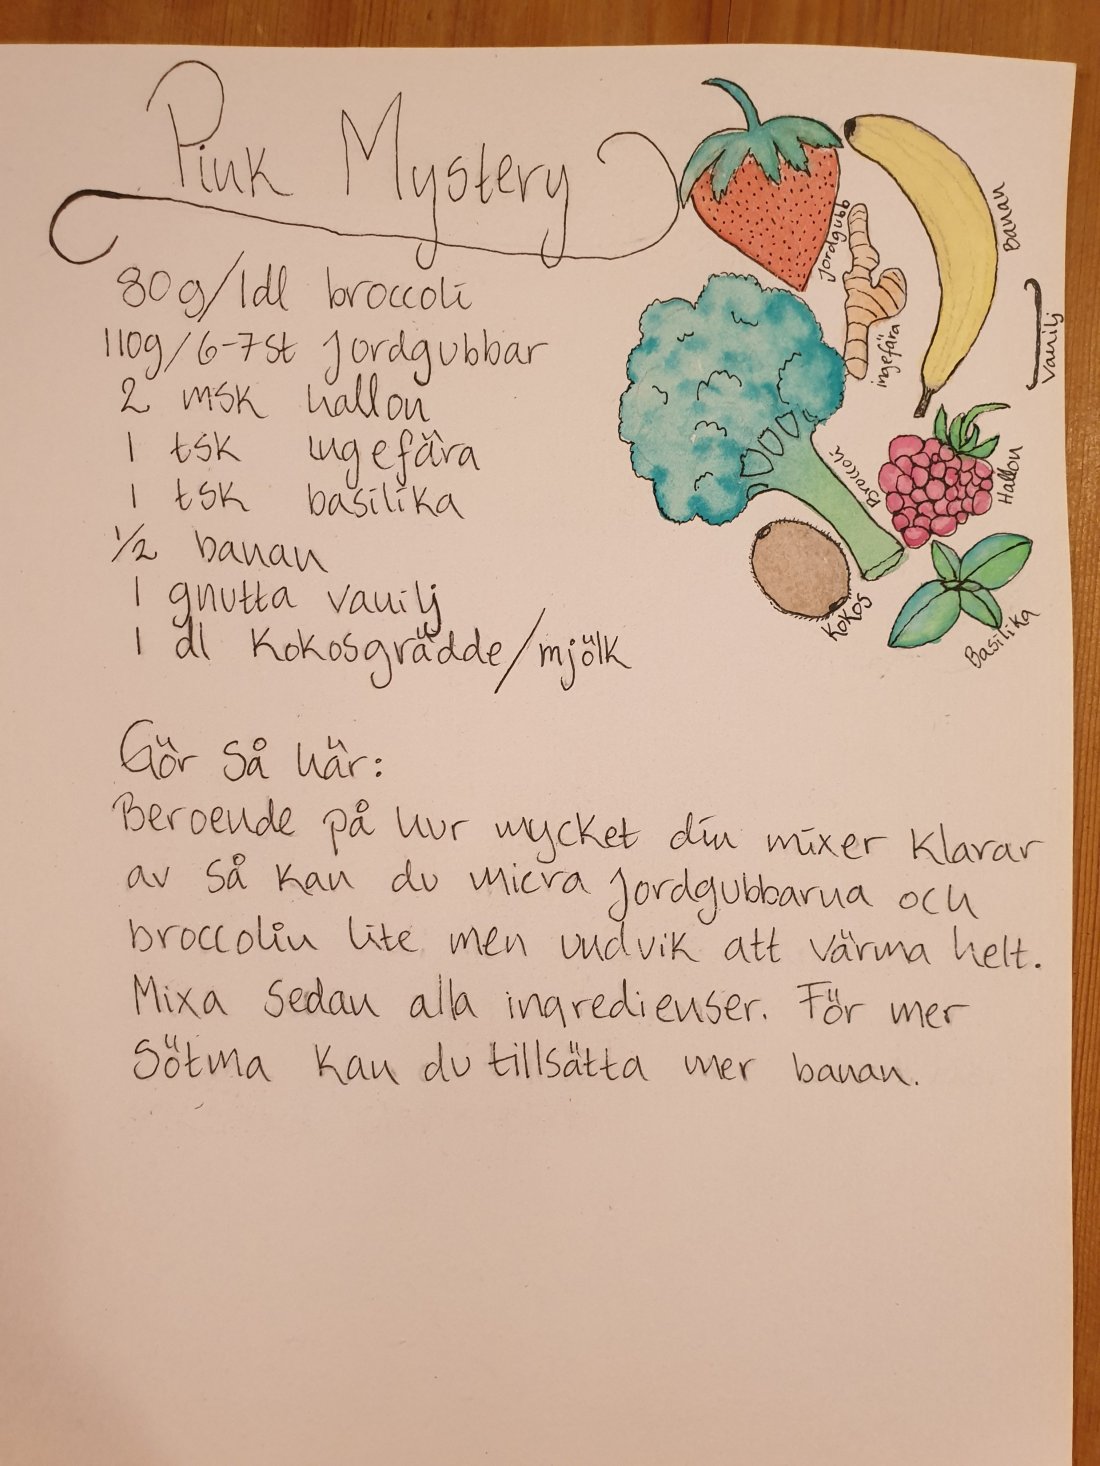 Pink Mystery
80g/1dl broccoli
110g/6-7st jordgubbar
2 msk hallon
1 tsk ingefära
1 tsk basilika
1/2 banan
1 gnutta vanilj
1 dl kokosgrädde/mjölk
Jordgubb
Banan
ingefära
Vanilj
Broccoli
Hallon
Kokos
Basilika
Gör så här:
Beroende på hur mycket din mixer klarar
av så kan du micra jordgubbarna och
broccolin lite men undvik att värma helt.
Mixa sedan alla ingredienser. För mer
sötma kan du tillsätta mer banan.